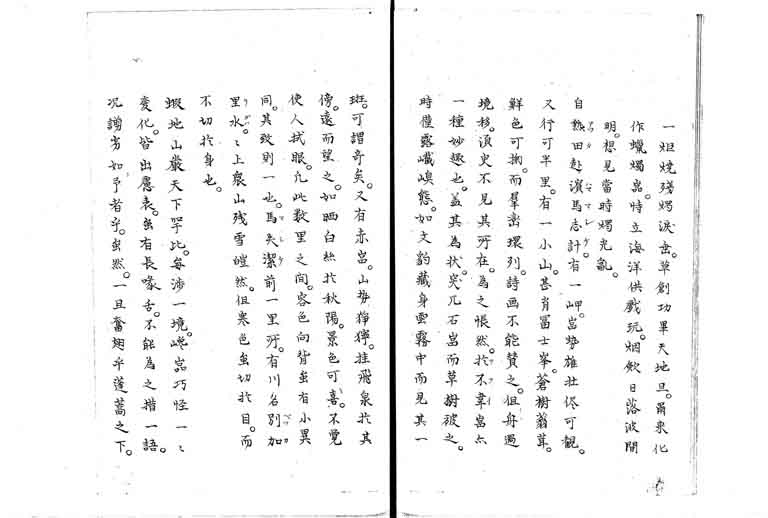 一炬燒殘燭淚垂。草創功畢天地旦。爾來化
作蠟燭嵓。特立海洋供戲玩。烟斂日落波間
明。想見當時燭光亂。
自熱田赴濱馬志計。有一岬。嵓勢雄壮侭可觀。
又行可半里。有一小山。甚肖冨士峯。蒼樹蓊茸。
鮮色可掬。而羣巒環列。詩画不能賛之。但舟過
境移。須史不見其所在。為之悵然。於不韋嵓亦
一種妙趣也。盖其為状。突兀石嵓而草樹被之。
時僅露巉嶼態。如文豹藏身雲霧中而見其一
班。可謂奇矣。又有赤嵓。山勢猙獰。挂飛泉於其
傍。遠而望之。如晒白絲於秋陽。景色可喜。不覺
使人拭眼。凢此数里之間。容色向背虽有小異
同。其致則一也。馬矢潔前一里所。有川名別加
里水。〻上衆山残雪皚然。但寒色虽切於目。而
不切於身也。
蝦地山巌天下罕比。毎渉一境。嵘嵓巧怪一〻
変化。皆出意表。虽有長喙舌。不能為之措一語。
况謭劣如予者乎。虽然。一旦奮翅乎蓬蒿之下。